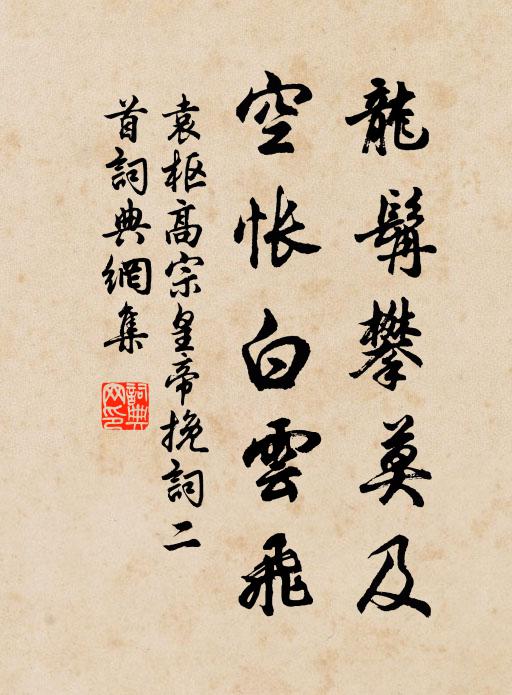 龍髯攀莫及
空悵白雲飛
袁樞高宗皇帝挽詞二
首詞典網集
詞典
网印